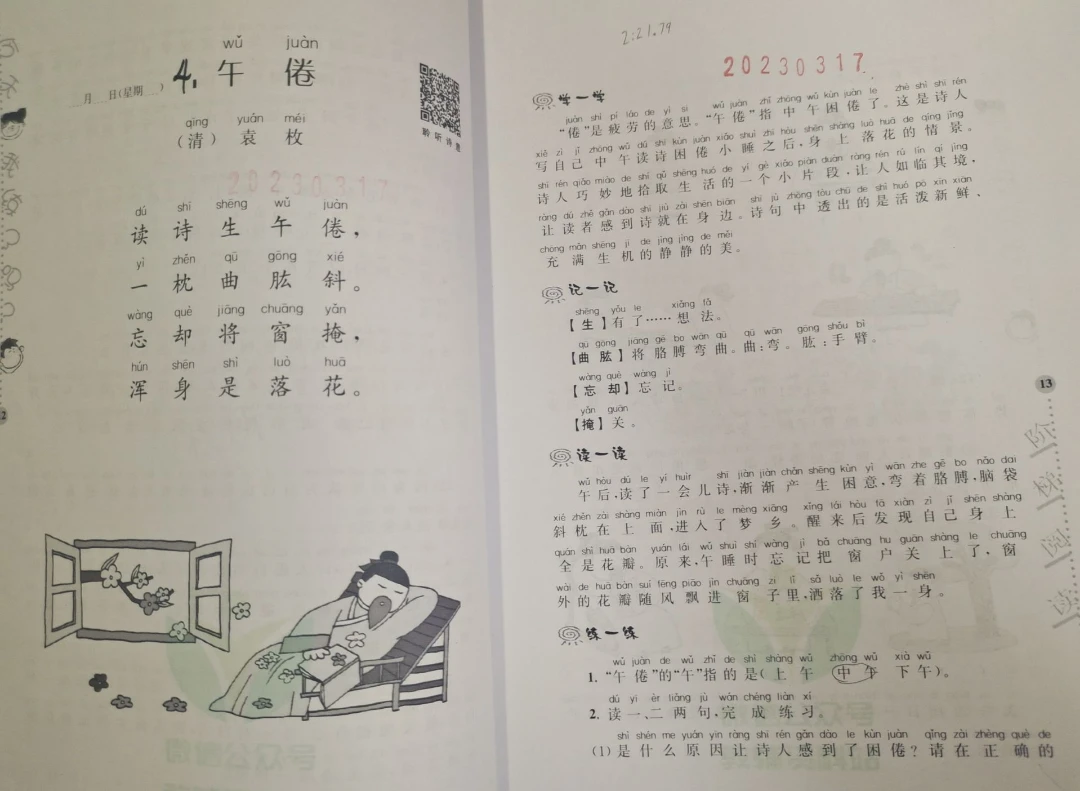 wǔ juàn
月 日(星期 ) 4. 午 倦
qīng yuán méi
(清) 袁 枚
聆听诗意
20230317
dú shī shēng wǔ juàn
读 诗 生 午 倦,
yì zhěn qū gōng xié
一 枕 曲 肱 斜。
wàng què jiāng chuāng yǎn
忘 却 将 窗 掩,
hún shēn shì luò huā
浑 身 是 落 花。
2:21.79
20230317
学一学
juàn shì pí láo de yì si wǔ juàn zhǐ zhōng wǔ kùn juàn le zhè shì shī rén
“倦”是疲劳的意思。“午倦”指中午困倦了。这是诗人
xiě zì jǐ zhōng wǔ dú shī kùn juàn xiǎo shuì zhī hòu shēn shàng luò huā de qíng jǐng
写自己中午读诗困倦小睡之后,身上落花的情景。
shī rén qiǎo miào de shí qǔ shēng huó de yí gè xiǎo piàn duàn ràng rén rú lín qí jìng
诗人巧妙地拾取生活的一个小片段,让人如临其境,
ràng dú zhě gǎn dào shī jiù zài shēn biān shī jù zhōng tòu chū de shì huó pō xīn xiān
让读者感到诗就在身边。诗句中透出的是活泼新鲜、
chōng mǎn shēng jī de jìng jìng de měi
充满生机的静静的美。
记一记
shēng yǒu le xiǎng fǎ
【生】有了……想法。
qū gōng jiāng gē bo wān qū qū wān gōng shǒu bì
【曲肱】将胳膊弯曲。曲:弯。肱:手臂。
wàng què wàng jì
【忘却】忘记。
yǎn guān
【掩】关。
读一读
wǔ hòu dú le yí huìr shī jiàn jiàn chǎn shēng kùn yì wān zhe gē bo nǎo dai
午后,读了一会儿诗,渐渐产生困意,弯着胳膊,脑袋
xié zhěn zài shàng miàn jìn rù le mèng xiāng xǐng lái hòu fā xiàn zì jǐ shēn shàng
斜枕在上面,进入了梦乡。醒来后发现自己身上
quán shì huā bàn yuán lái wǔ shuì shí wàng jì bǎ chuāng hu guān shàng le chuāng
全是花瓣。原来,午睡时忘记把窗户关上了,窗
wài de huā bàn suí fēng piāo jìn chuāng zi lǐ sǎ luò le wǒ yì shēn
外的花瓣随风飘进窗子里,洒落了我一身。
练一练
wǔ juàn de wǔ zhǐ de shì shàng wǔ zhōng wǔ xià wǔ
1. “午倦”的“午”指的是(上午 中午 下午)。
dú yī èr liǎng jù wán chéng liàn xí
2. 读一、二两句,完成练习。
shì shén me yuán yīn ràng shī rén gǎn dào le kùn juàn qǐng zài zhèng què de
(1)是什么原因让诗人感到了困倦?请在正确的
13
2
阶
梯
阅
读